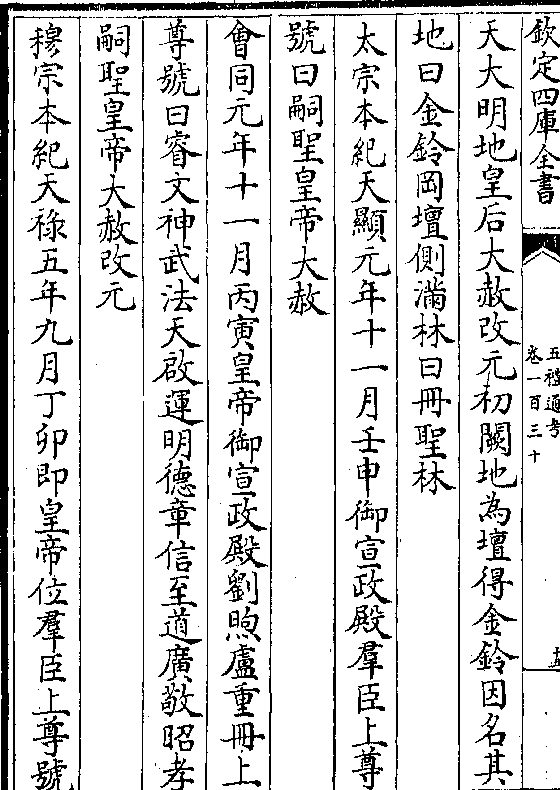 欽定四庫全書
五禮通考
卷一百三十
天大明地皇后大赦改元初闕地為壇得金鈴因名其
地曰金鈴岡壇側滿林曰冊聖林
太宗本紀天顯元年十一月壬申御宣政殿羣臣上尊
號曰嗣聖皇帝大赦
會同元年十一月丙寅皇帝御宣政殿劉煦盧重冊上
尊號曰睿文神武法天啟運明德章信至道廣敬昭孝
嗣聖皇帝大赦改元
穆宗本紀天祿五年九月丁卯即皇帝位羣臣上尊號